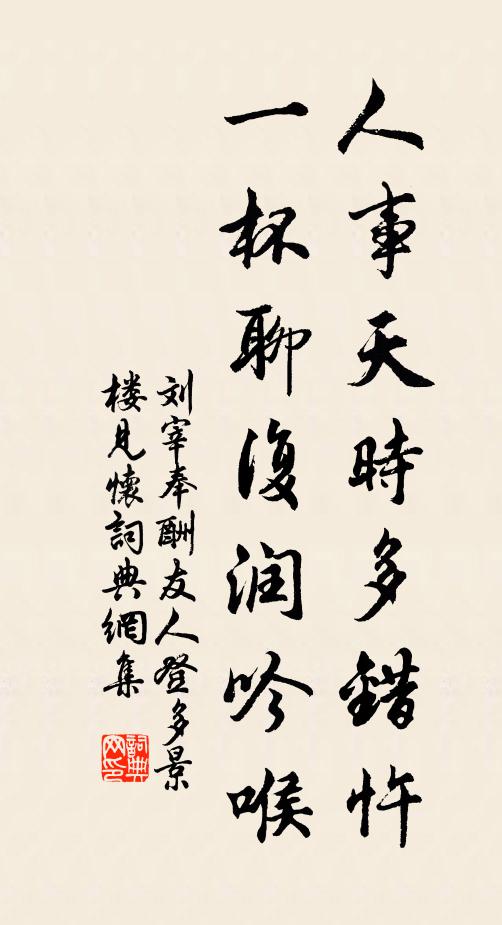 人事天時多錯忤
一杯聊復润吟喉
刘宰奉酬友人登多景
楼見懷詞典網集
詞典
网印